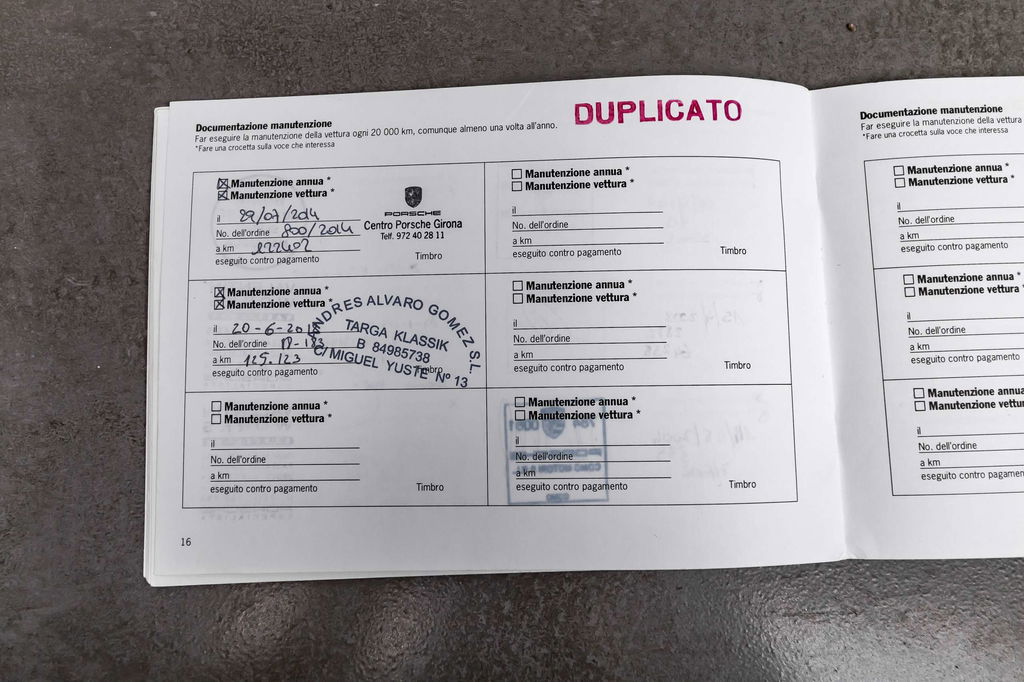 DUPLICATO
Documentazione manutenzione
Far eseguire la manutenzione della vettura ogni 20 000 km, comunque almeno una volta all'anno.
*Fare una crocetta sulla voce che interessa
Manutenzione annua *
Manutenzione vettura *
il 29/07/2014
No. dell'ordine 800/2014
a km 122402
eseguito contro pagamento
PORSCHE
Centro Porsche Girona
Telf. 972 40 28 11
Timbro
Manutenzione annua *
Manutenzione vettura *
il
No. dell'ordine
a km
eseguito contro pagamento
Timbro
Manutenzione annua *
Manutenzione vettura *
il 20-6-201
No. dell'ordine
a km 125.123
eseguito contro pagamento
Timbro
ANDRES ALVARO GOMEZ S.L.
TARGA KLASSIK
B 84985738
C/ MIGUEL YUSTE Nº 13
Manutenzione annua *
Manutenzione vettura *
il
No. dell'ordine
a km
eseguito contro pagamento
Timbro
Manutenzione annua *
Manutenzione vettura *
il
No. dell'ordine
a km
eseguito contro pagamento
Timbro
Manutenzione annua *
Manutenzione vettura *
il
No. dell'ordine
a km
eseguito contro pagamento
Timbro
16
Documentazione manutenzione
Far eseguire la manutenzione della vettura
*Fare una crocetta sulla voce che interessa
Manutenzione annua *
Manutenzione vettura *
il
No. dell'ordine
a km
eseguito contro pagamento
Manutenzione annua *
Manutenzione vettura
il
No. dell'ordine
a km
eseguito contro pagamento
Manutenzione annua
Manutenzione
il
No. dell'ordine
a km
eseguito contro